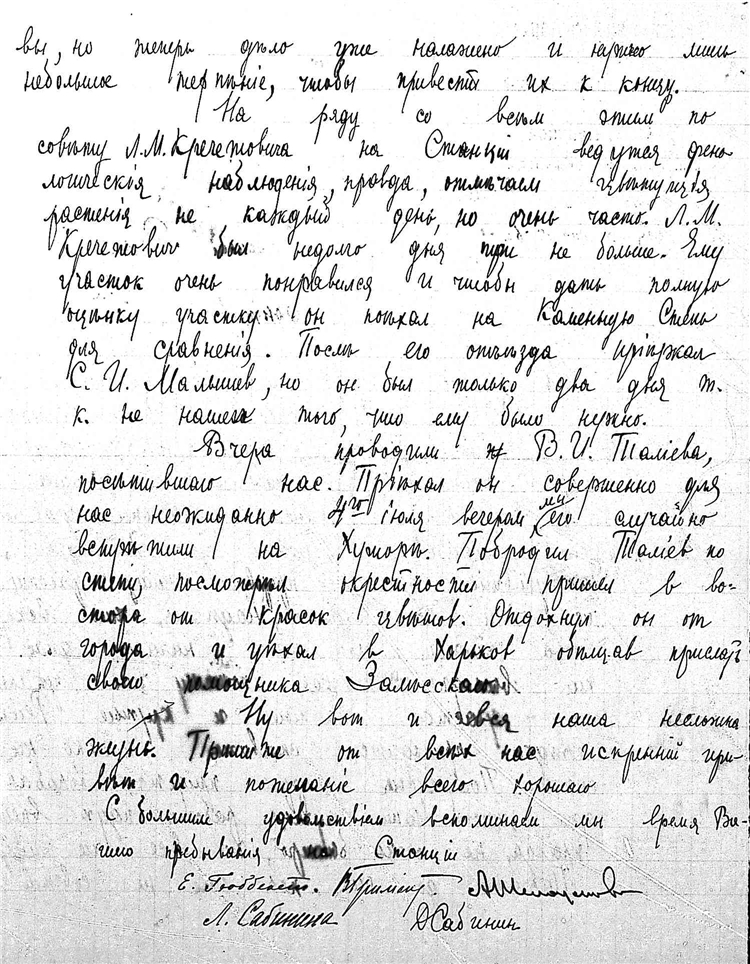 вы, но теперь дѣло уже налажено и нужно лишь
небольшое терпѣніе, чтобы привести их к концу.
На ряду со всѣм этим по
совѣту Л.М.Кречетовича на Станціи ведутся фено
логическія наблюденія, правда, отмѣчаем цвѣтущія
растенія не каждый день, но очень часто. Л.М.
Кречетович был недолго дня три не больше. Ему
участок очень понравился и чтобы дать полную
оцѣнку участку он поѣхал на Каменную Степь
для сравненія. Послѣ его отъѣзда пріѣзжал
С. И. Малышев, но он был только два дня т.
к. не нашел того, что ему было нужно.
Вчера проводили В. И. Таліева,
посѣтившаго нас. Пріѣхал он совершенно для
нас неожиданно 4го іюля вечером мы его случайно
встрѣтили на Хуторѣ. Побродил Таліев по
степи, посмотрѣл окрестности пришел в во-
сторг от красок цвѣтов. Отдохнул он от
города и уѣхал в Харьков обѣщав прислать
своего помощника Залѣсскаго
Ну вот и вся наша несложная
жизнь. Примите от всѣх нас искренній при-
вѣт и пожеланіе всего хорошаго
С большим удовольствіем вспоминаем мы время Ва-
шего пребыванія на Станціи
Л. Сабинина Д Сабинин